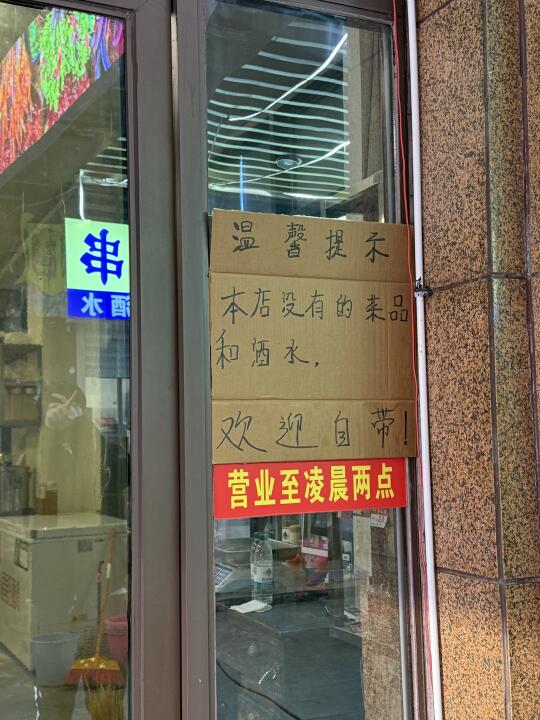 串
酒水
温馨提示
本店没有的菜品
和酒水,
欢迎自带!
营业至凌晨两点